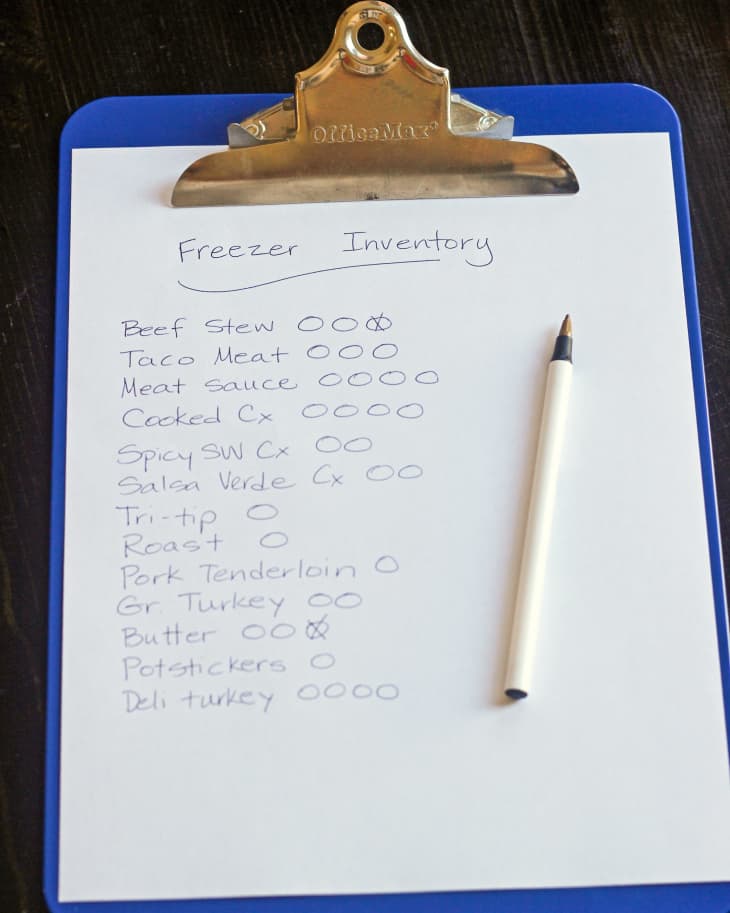 OfficeMax
Freezer Inventory
Beef Stew OOⓧ
Taco Meat OOO
Meat Sauce OOOO
Cooked Cx OOOO
Spicy SW Cx OO
Salsa Verde Cx OO
Tri-tip O
Roast O
Pork Tenderloin O
Gr. Turkey OO
Butter OOⓧ
Potstickers O
Deli turkey OOOO